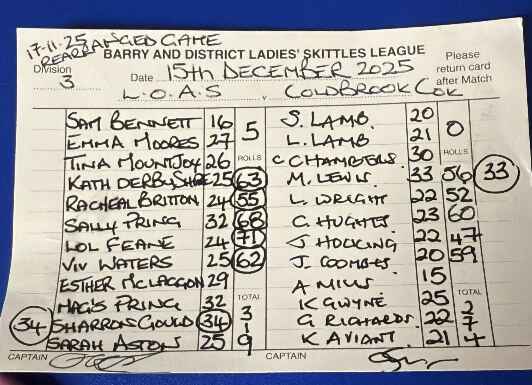 17-11-25
REARRANGED GAME
BARRY AND DISTRICT LADIES' SKITTLES LEAGUE
Division 3 Date 15th DECEMBER 2025 Please return card after Match
L.O.A.S v COLDBROOK COK
SAM BENNETT 16 5 S. LAMB 20 0
EMMA MOORES 27 L. LAMB 21
TINA MOUNTJOY 26 ROLLS C CHAMBERS 30 ROLLS
KATH DERBYSHIRE 25 63 M. LEWIS 33 56 33
RACHEAL BRITTON 24 55 L. WRIGHT 22 52
SALLY PRING 32 68 C. HUGHES 23 60
LOL FEANE 24 71 J HOCKING 22 47
VIV WATERS 25 62 J. COOMBES 20 59
ESTHER MCLAGGON 29 A MILLS 15
MAGS PRING 32 TOTAL K GWYNE 25 TOTAL
34 SHARRON GOULD 34 319 G RICHARDS 22 274
SARAH ASTON 25 K AVIANT 21
CAPTAIN CAPTAIN